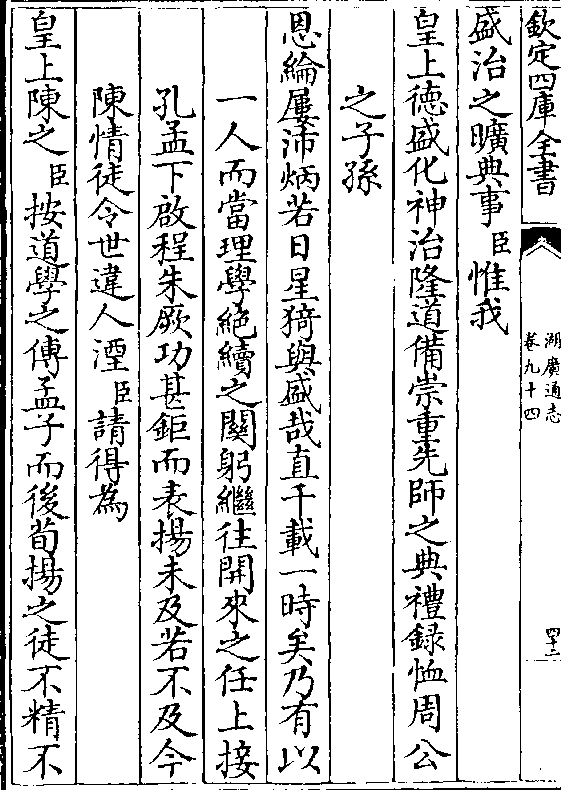 欽定四庫全書
湖廣通志
卷九十四
四十二
盛治之曠典事臣惟我
皇上德盛化神治隆道備崇重先師之典禮録恤周公
之子孫
恩綸屢沛炳若日星猗與盛哉直千載一時矣乃有以
一人而當理學絶續之關躬繼往開來之任上接
孔孟下啟程朱厥功甚鉅而表揚未及若不及今
陳情徒令世違人湮臣請得為
皇上陳之臣按道學之傳孟子而後荀揚之徒不精不